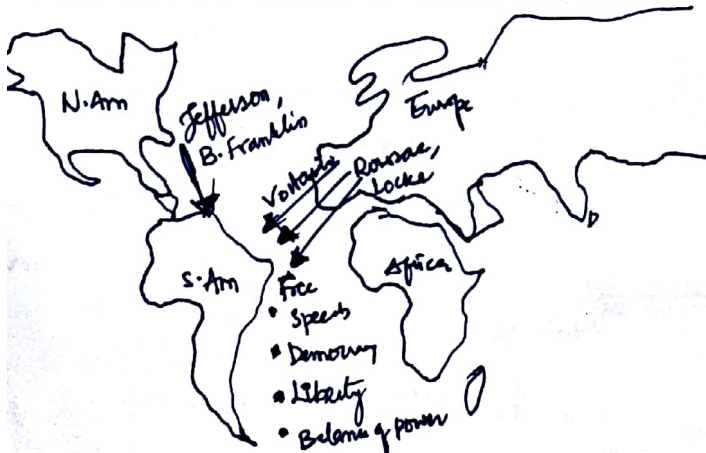 N.Am
Jefferson,
B. Franklin
Europe
Voltaire
Rousae,
Locke
S.Am
Africa
Free
• Speech
• Democracy
• Liberty
• Balance of power